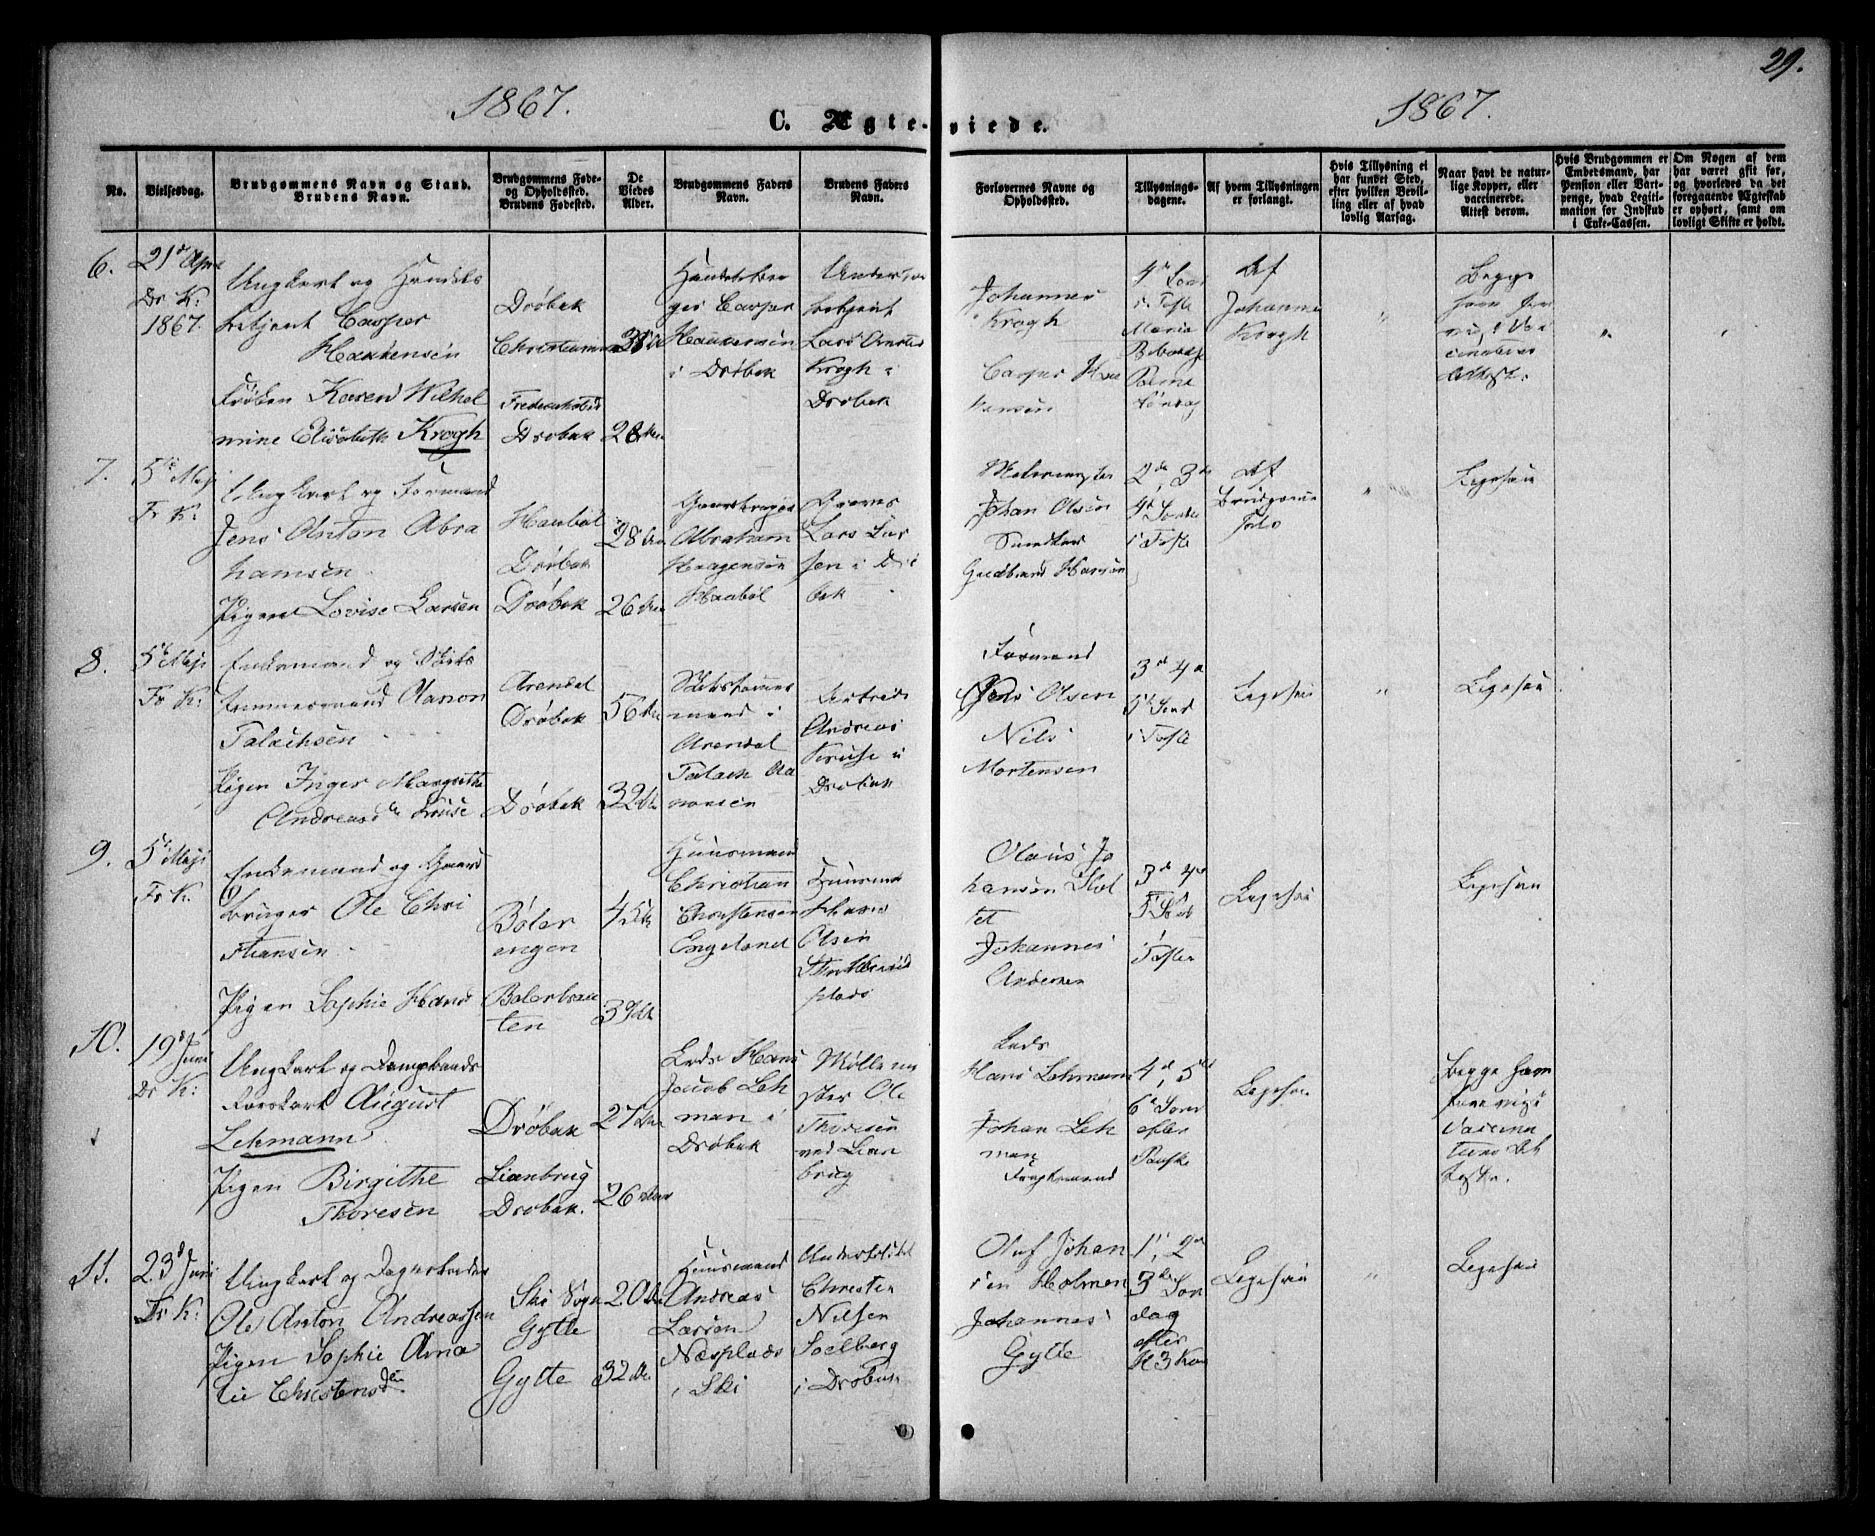 29.
1867.
1867.
C. Ægte-viede.
No.
Vielsesdag.
Brudgommens Navn og Stand.
Brudens Navn.
Brudgommens Føde-
og Opholdssted.
Brudens Fødested.
De
Viedes
Alder.
Brudgommens Faders
Navn.
Brudens Faders
Navn.
Forlovernes Navne og
Opholdssted.
Tillysnings-
dagene.
Af hvem Tillysningen
er forlangt.
Hvis Tillysning ei
har fundet Sted,
efter hvilken Bevil-
ling eller af hvad
lovlig Aarsag.
Naar havt de natur-
lige Kopper, eller
vaccinerede.
Attest derom.
Hvis Brudgommen er
Embedsmand, har
Pension eller Vart-
penge, hvad Legiti-
mation for Indskud
i Enke-Cassen.
Om Nogen af dem
har været gift før,
og hvorledes da det
foregaaende Ægteskab
er ophørt, samt om
lovligt Skifte er holdt.
6.
21de April
Dr K:
1867.
Ungkarl og Handels
betjent Casper
Frøken Karen Wilhel
mine Elisabeth Krogh
Drøbak
Christiania
Drøbak
28 Aar
i Drøbak
Krogh i
Drøbak
Johannes
Krogh
Af
Johannes
Krogh
Begge
7.
5te Maji
Fr K:
Ungkarl og Formand
Jens Anton Abra
hamsen
Pigen Lovise Larsen
Haabøl
Drøbak
Drøbak
28 Aar
26 Aar
Gaardbruger
Abraham
Haagensen
Haabøl
Lars Lar
sen i Drø
bak
Johan Olsen
Guldbrand Hansen
2den, 3de
4de Sønd
i Faste
Af
Brudgommen
Ligesaa
8.
5te Maji
Fr K:
Enkemand og Skibs
tømmermand Aanon
Talachsen
Pigen Inger Margrethe
Andreasdtr Kruse
Arendal
Drøbak
Drøbak
56 Aar
32 Aar
Skibstømmer
mand i
Arendal
Talach Aa
nonsen
Andreas
Kruse i
Drøbak
Formand
Jens Olsen
Nils
Mortensen
3de 4de
5te Sønd
i Faste
Ligesaa
Ligesaa
9.
5te Maji
Fr K.
Enkemand og Gaard
bruger Ole Chri
stiansen
Pigen Sophie Hansd
Bøler
engen
Bølerbraa
ten
45 Aar
39 Aar
Huusmand
Christian
Christensen
Engelund
Huusmand
Hans
Olsen
plads
Olaus Jo
hansen Slot
tet
Johannes
Andersen
3de 4de
5te Sønd
i
Fasten
Ligesaa
Ligesaa
10.
19de Juni
Dr K:
Ungkarl og Dampbaads
August
Lehmann
Pigen Birgithe
Thoresen
Drøbak
Lianbrug
Drøbak.
27 Aar
26 Aar
Lods Hans
Jacob Leh
man i
Drøbak
Mølle me
ster Ole
Thoresen
ved Lian
brug
Lods
Hans Lehmann
Johan Leh
man
4de, 5te
6te Sønd
efter
Paaske
Ligesaa
Begge have
11.
23de Juni
Fr K:
Ungkarl og Dagarbeider
Ole Anton Andreassen
Pigen Sophie Ama
lie Christensden
Ski Sogn
Gylte
Gylte
20 Aar
32 Aar
Huusmand
Andreas
Larsen
Næsplads
i Ski
Christen
Nilsen
Soelberg
i Drøbak
Oluf Johan
sen Holmen
Johannes
Gylte
1ste, 2den
3die Søn
dag
efter
H 3 Kon
Ligesaa
Ligesaa